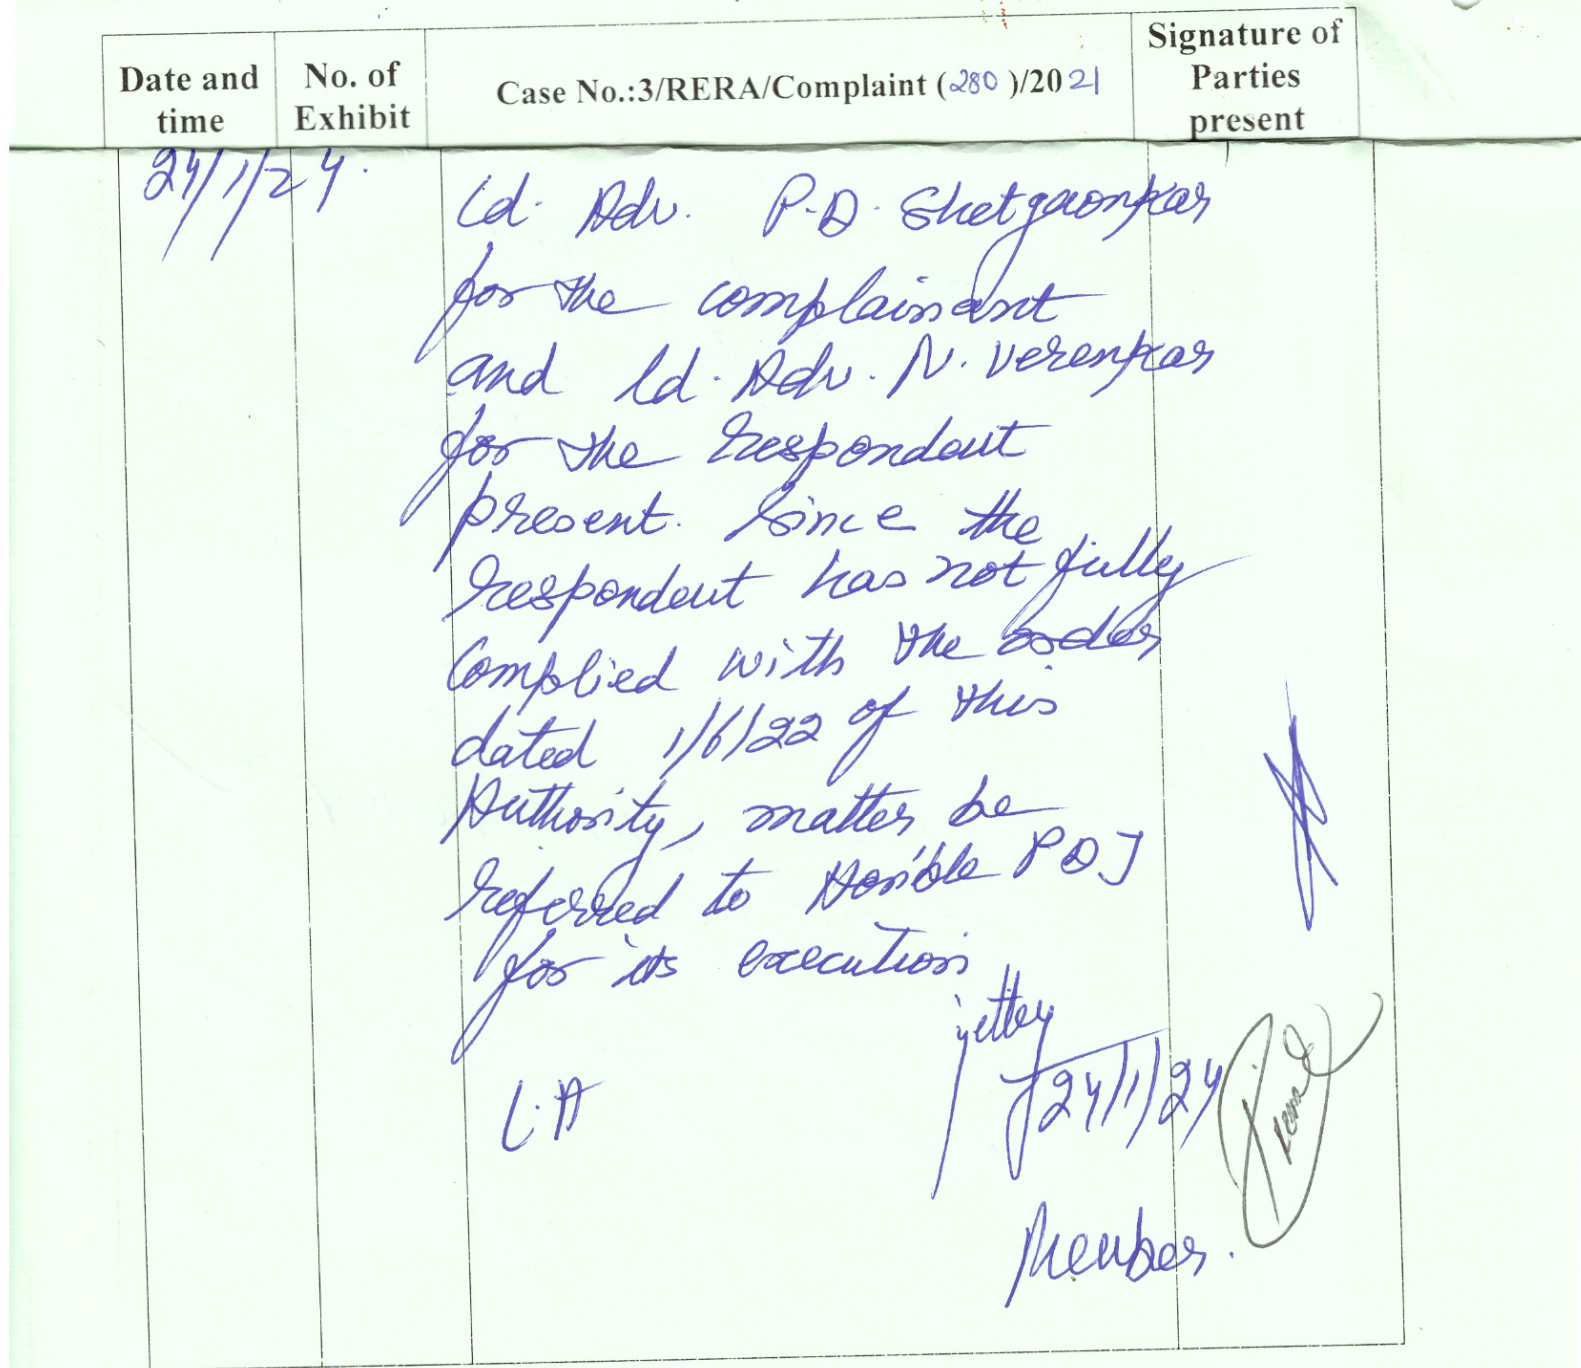 Date and time
No. of Exhibit
Case No.:3/RERA/Complaint (280)/2021
Signature of Parties present
24/1/24.
Ld. Adv. P.D. Shetgaonkar
for the complainant
and Ld. Adv. N. Verenkar
for the respondent
present. Since the
respondent has not fully
complied with the order
dated 1/6/22 of this
Authority, matter be
referred to Hon'ble PDJ
for its execution
24/1/24
Member.